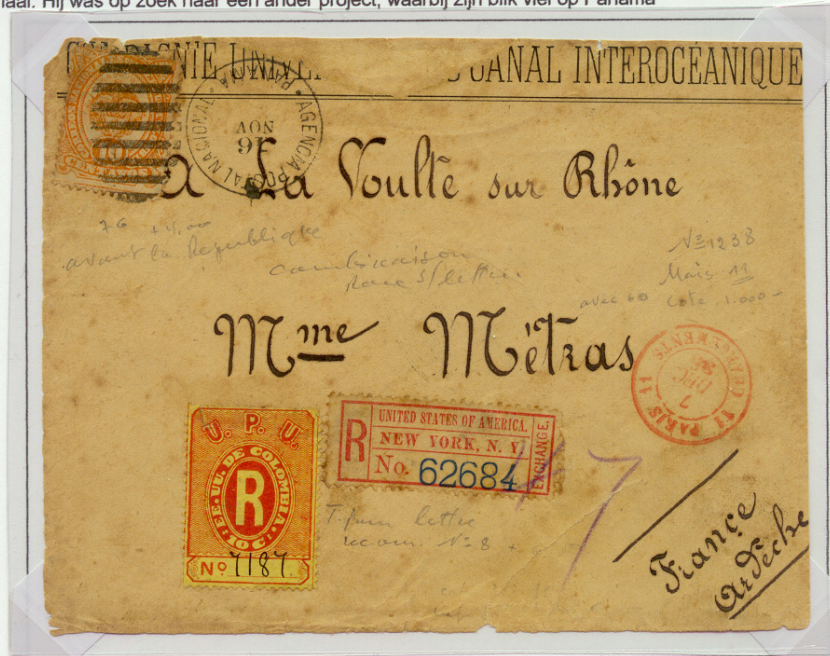 naar. Hij was op zoek naar een ander project, waarbij zijn blik viel op Panama
CANAL INTEROCÉANIQUE
AGENCIA POSTAL NACIONAL · PANAMA
NOV
10
A La Voulte sur Rhône
avant la Republique
combinaison
rare s/ lettre
No 1238
Mais 11
avec 60 Cote 1.000 -
Mme Métras
PARIS 11
CHARGEMENTS
7
DEC
U. P. U.
EE. UU. DE COLOMBIA.
10 C.
R
No 7187
R
UNITED STATES OF AMERICA.
NEW YORK, N. Y.
No. 62684
EXCHANGE.
7
lettre
recom. No 8
France
Ardèche